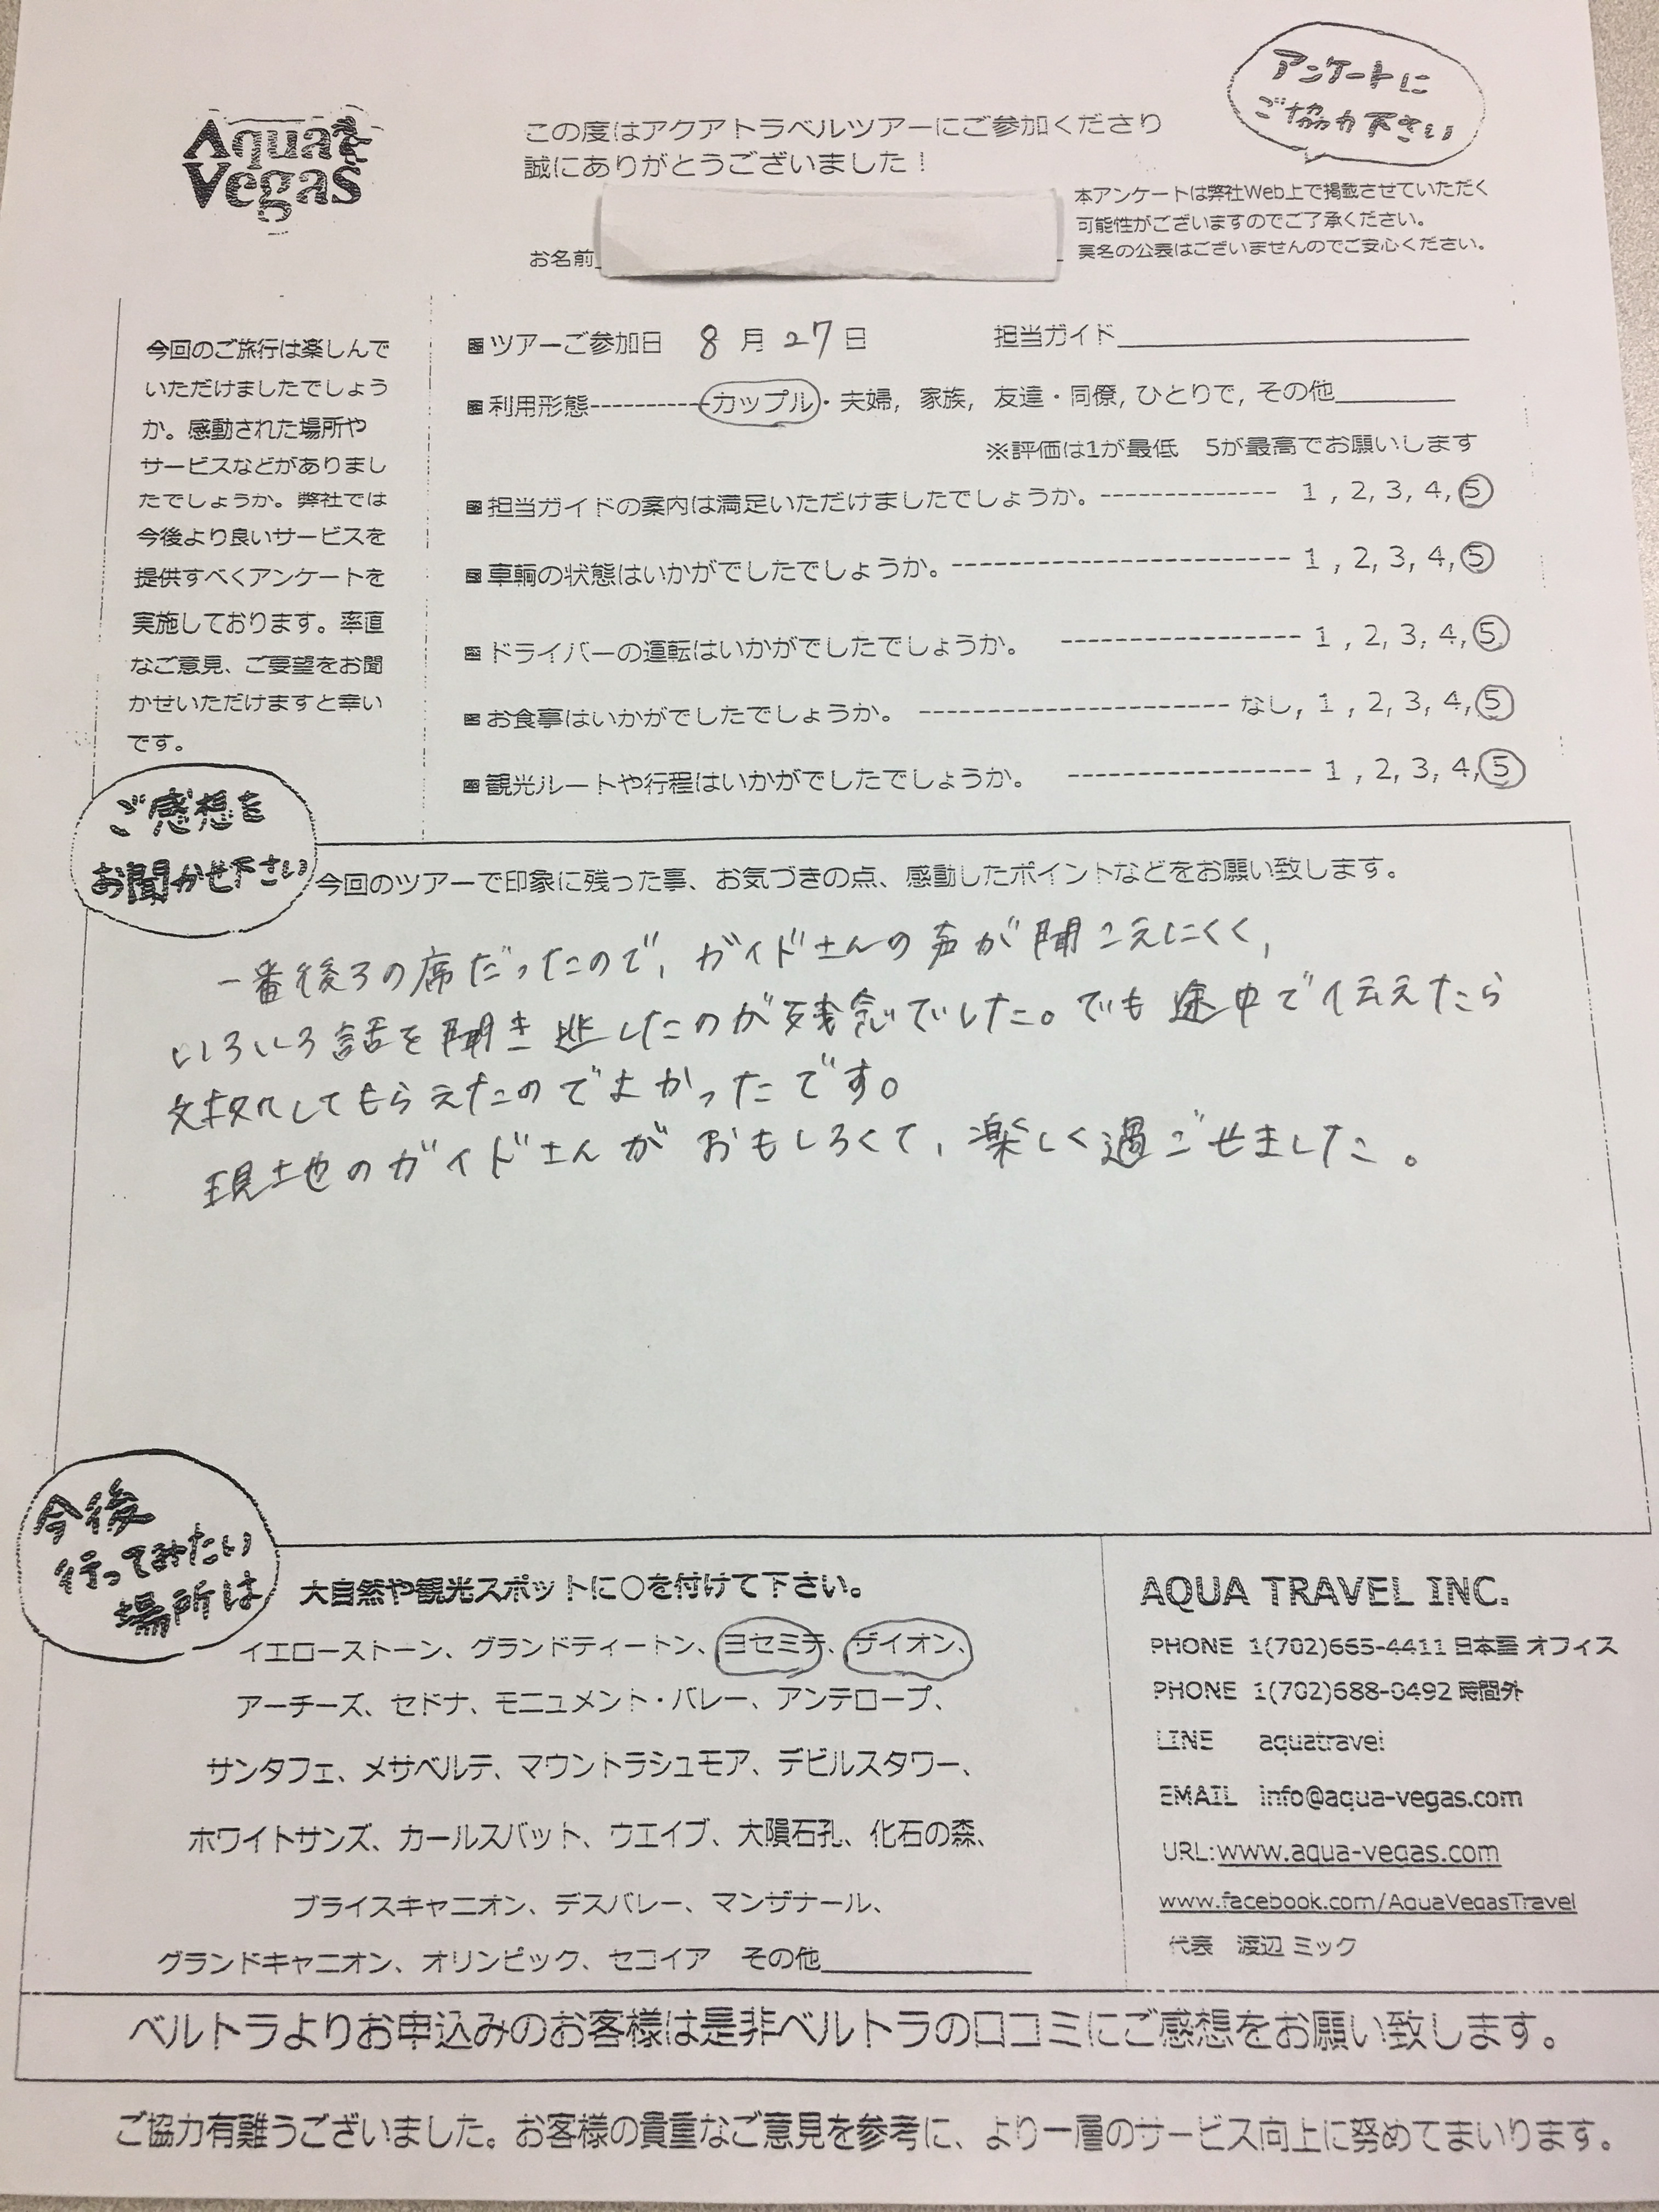 Aqua
Vegas
この度はアクアトラベルツアーにご参加くださり
誠にありがとうございました！
アンケートに
ご協力下さい
本アンケートは弊社Web上で掲載させていただく
可能性がございますのでご了承ください。
実名の公表はございませんのでご安心ください。
お名前
今回のご旅行は楽しんで
いただけましたでしょう
か。感動された場所や
サービスなどがありまし
たでしょうか。弊社では
今後より良いサービスを
提供すべくアンケートを
実施しております。率直
なご意見、ご要望をお聞
かせいただけますと幸い
です。
■ツアーご参加日 8月27日 担当ガイド
■利用形態----------カップル・夫婦, 家族, 友達・同僚, ひとりで, その他
※評価は1が最低 5が最高でお願いします
■担当ガイドの案内は満足いただけましたでしょうか。-------------- 1 , 2, 3, 4, 5
■車輌の状態はいかがでしたでしょうか。-------------------------- 1 , 2, 3, 4, 5
■ドライバーの運転はいかがでしたでしょうか。 ------------------ 1 , 2, 3, 4, 5
■お食事はいかがでしたでしょうか。 ----------------------- なし, 1 , 2, 3, 4, 5
■観光ルートや行程はいかがでしたでしょうか。 ------------------ 1 , 2, 3, 4, 5
ご感想を
お聞かせ下さい
今回のツアーで印象に残った事、お気づきの点、感動したポイントなどをお願い致します。
一番後ろの席だったので、ガイドさんの声が聞こえにくく、
いろいろ話を聞き逃したのが残念でした。でも途中で伝えたら
対処してもらえたのでよかったです。
現地のガイドさんがおもしろくて、楽しく過ごせました。
今後
行ってみたい
場所は
大自然や観光スポットに○を付けて下さい。
イエローストーン、グランドティートン、ヨセミテ、ザイオン、
アーチーズ、セドナ、モニュメント・バレー、アンテロープ、
サンタフェ、メサベルテ、マウントラシュモア、デビルスタワー、
ホワイトサンズ、カールスバット、ウエイブ、大隕石孔、化石の森、
ブライスキャニオン、デスバレー、マンザナール、
グランドキャニオン、オリンピック、セコイア その他
AQUA TRAVEL INC.
PHONE 1(702)665-4411 日本語 オフィス
PHONE 1(702)688-0492 時間外
LINE aquatravel
EMAIL info@aqua-vegas.com
URL:www.aqua-vegas.com
www.facebook.com/AquaVegasTravel
代表 渡辺 ミック
ベルトラよりお申込みのお客様は是非ベルトラの口コミにご感想をお願い致します。
ご協力有難うございました。お客様の貴重なご意見を参考に、より一層のサービス向上に努めてまいります。